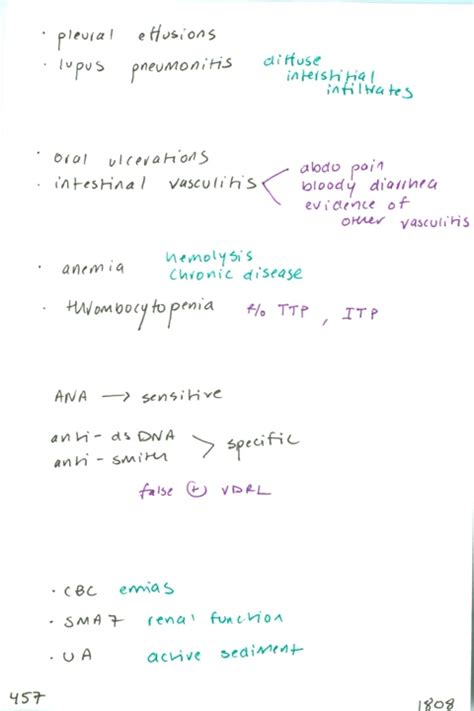 · pleural effusions
· lupus pneumonitis diffuse
interstitial
infiltrates
· oral ulcerations
· intestinal vasculitis < abdo pain
bloody diarrhea
evidence of
other vasculitis
· anemia hemolysis
chronic disease
· thrombocytopenia r/o TTP, ITP
ANA → sensitive
anti-dsDNA
anti-smith > specific
false ⊕ VDRL
· CBC emias
· SMA7 renal function
· UA active sediment
457
1808